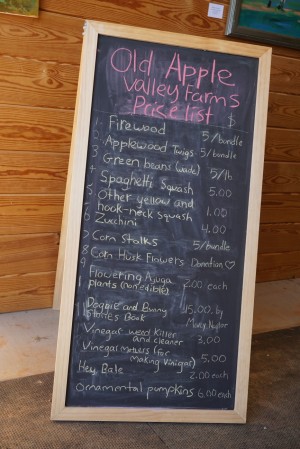 Old Apple
Valley Farms
Price list $
1. Firewood 5/bundle
2 Applewood Twigs 5/bundle
3 Green beans (wade) 5/lb
4 Spaghetti Squash 5.00
5. Other yellow and
hook-neck squash 1.00
6 Zucchini 4.00
7 Corn Stalks 5/bundle
8 Corn Husk Flowers Donation ♡
9 Flowering Ajuga
plants (non edible) 2.00 each
Doggie and Bunny 15.00 by
Stories Book Mary Naylor
Vinegar weed killer
and cleaner 3.00
Vinegar Mothers (for
making Vinigar) 5.00
Hey, Bale 2.00 each
Ornamental pumpkins 6.00 each